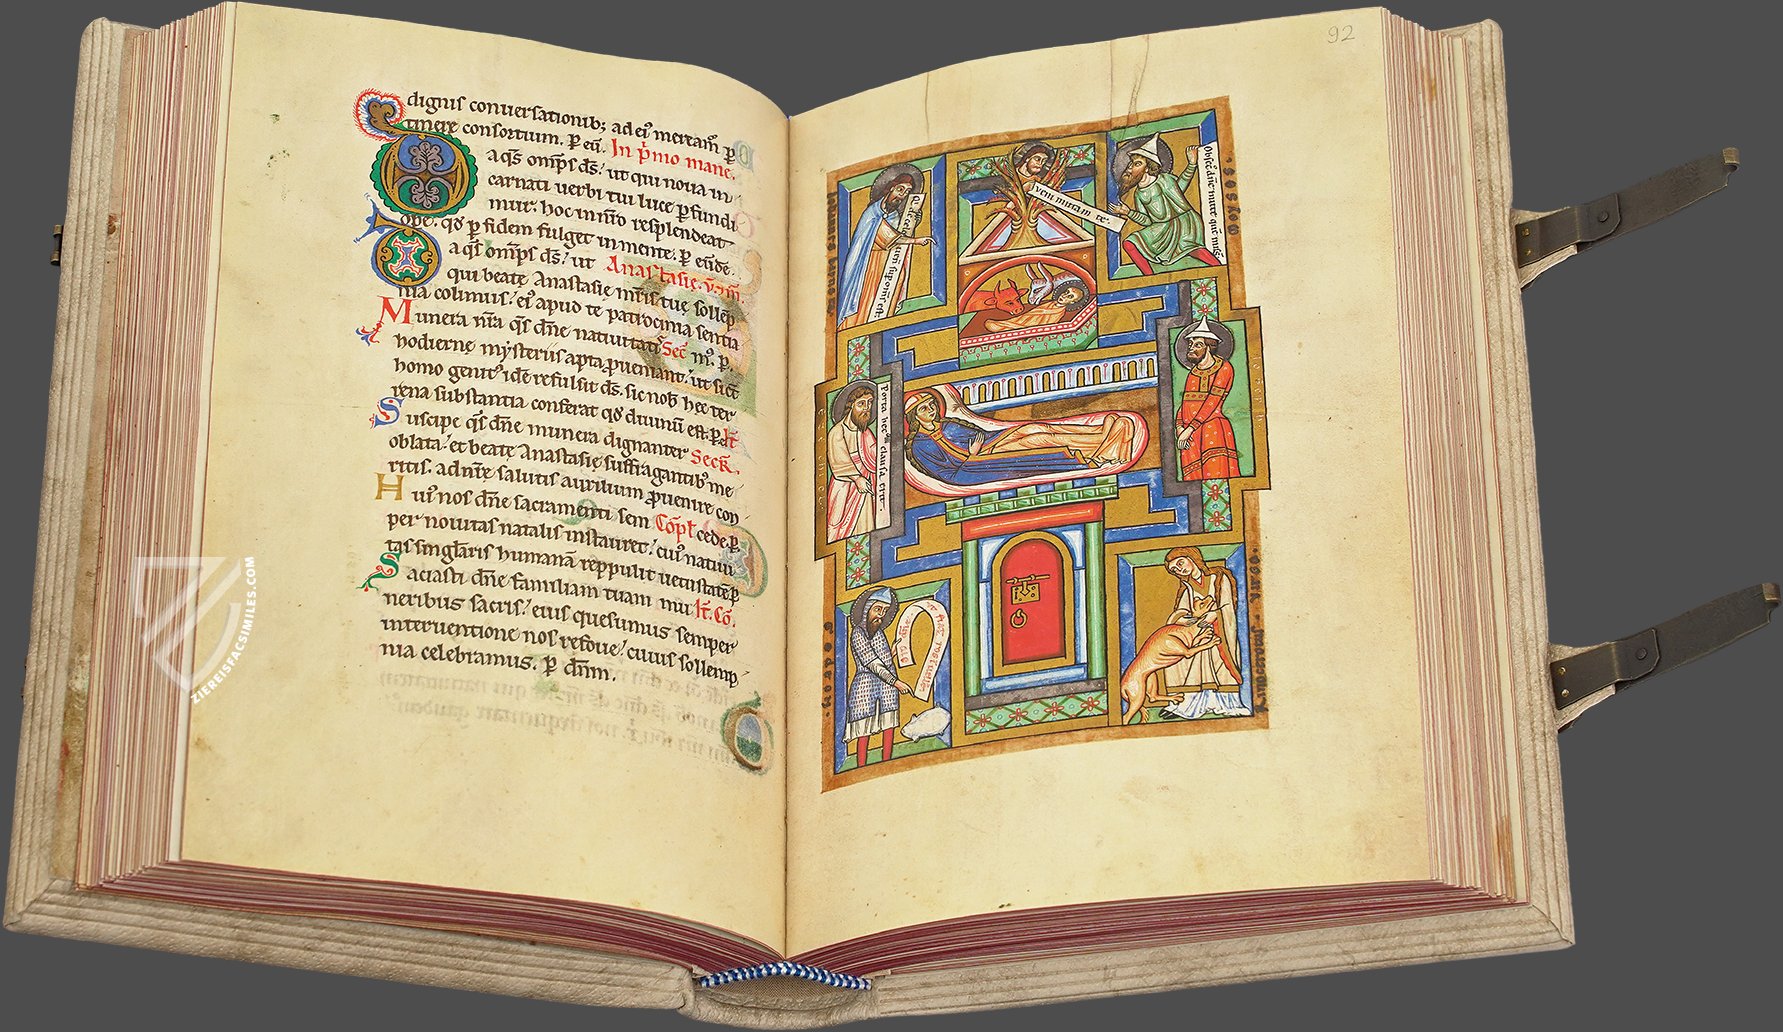 dignis conuersationib; ad ei' meream̄ p
tinere consortium. P eū. In p̄mo mane.
Da qs̄ omp̄s ds̄: ut qui noua in
carnati uerbi tui luce pfundi
mur: hoc in nr̄o resplendeat
ope. qd' p fidem fulget in mente. P eūde.
Da qs̄ omp̄s ds̄: ut Anastasię. v. 7 m̄.
qui beatę Anastasię mr̄is tuę sollēp
nia colimus: ei' apud te patrocinia sentia
Munera nr̄a qs̄ dn̄e natiuitati Sec̄ m'. P.
hodiernę mysteriis apta pueniant: ut sic̄
homo genit' idē refulsit ds̄. sic nob' hec ter
rena substantia conferat qd' diuinū est. P.
Suscipe qs̄ dn̄e munera dignanter Secr̄.
oblata: et beatę Anastasię suffragantib' me
ritis. ad nr̄ę salutis auxilium puenire con
Hui' nos dn̄e sacramenti sem Cōpl̄ cede. P.
per nouitas natalis instauret: cui' natiui
tas singl̄aris humanā reppulit uetustatē. P
Saciasti dn̄e familiam tuam mu It̄. Cō.
neribus sacris: eius quesumus semper
interuentione nos refoue: cuius sollemp
nia celebramus. P dn̄m.
92
veni in tram te.
Obsec̄ dn̄e mitte quē miss'
Porta hec clausa erit.
ZIEREISFACSIMILES.COM